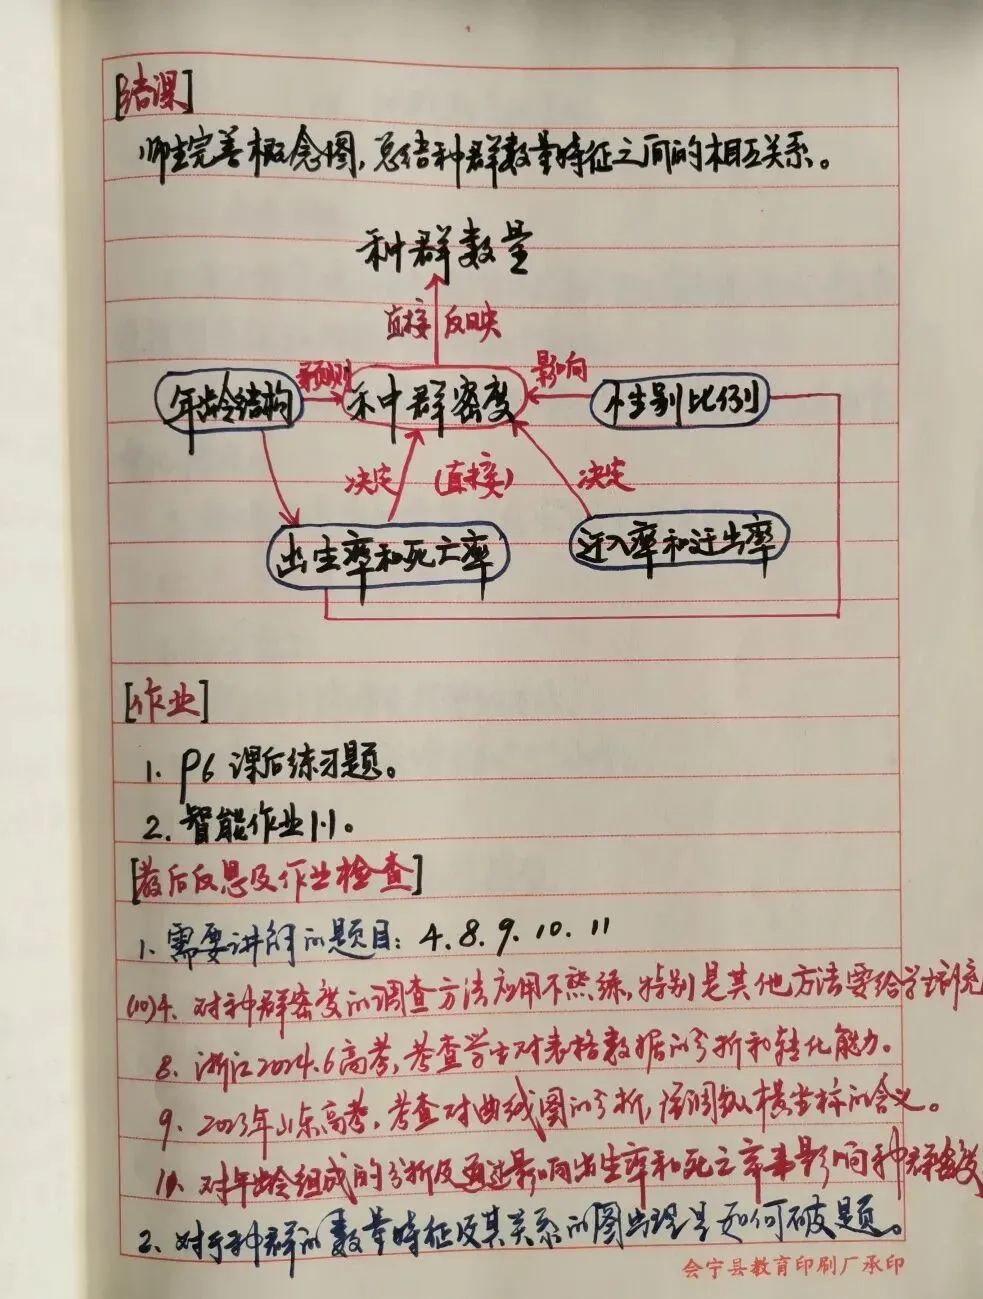 [结课]
师生完善概念图，总结种群数量特征之间的相互关系。
种群数量
直接 反映
年龄结构 预测 种群密度 影响 性别比例
决定 (直接) 决定
出生率和死亡率 迁入率和迁出率
[作业]
1. P6 课后练习题。
2. 智能作业1.1。
[教后反思及作业检查]
1. 需要讲解的题目：4. 8. 9. 10. 11
(10)4. 对种群密度的调查方法应用不熟练，特别是其他方法要给学生补充
8. 浙江2024.6高考，考查学生对表格数据的分析和转化能力。
9. 2023年山东高考，考查对曲线图的分析，强调纵横坐标的含义。
11. 对年龄组成的分析及通过影响出生率和死亡率来影响种群密度
2. 对于种群的数量特征及其关系的图出现时如何破题。
会宁县教育印刷厂承印